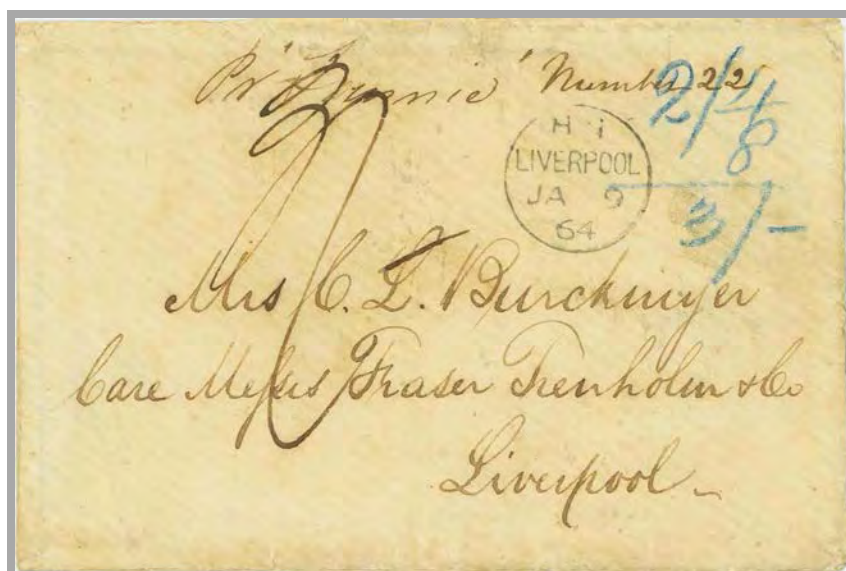 Pr "Fannie" Number 22
H 1
LIVERPOOL
JA 9
64
2/4
8
3/-
Mrs C. L. Burckmyer
Care Messrs Fraser Trenholm & Co
Liverpool